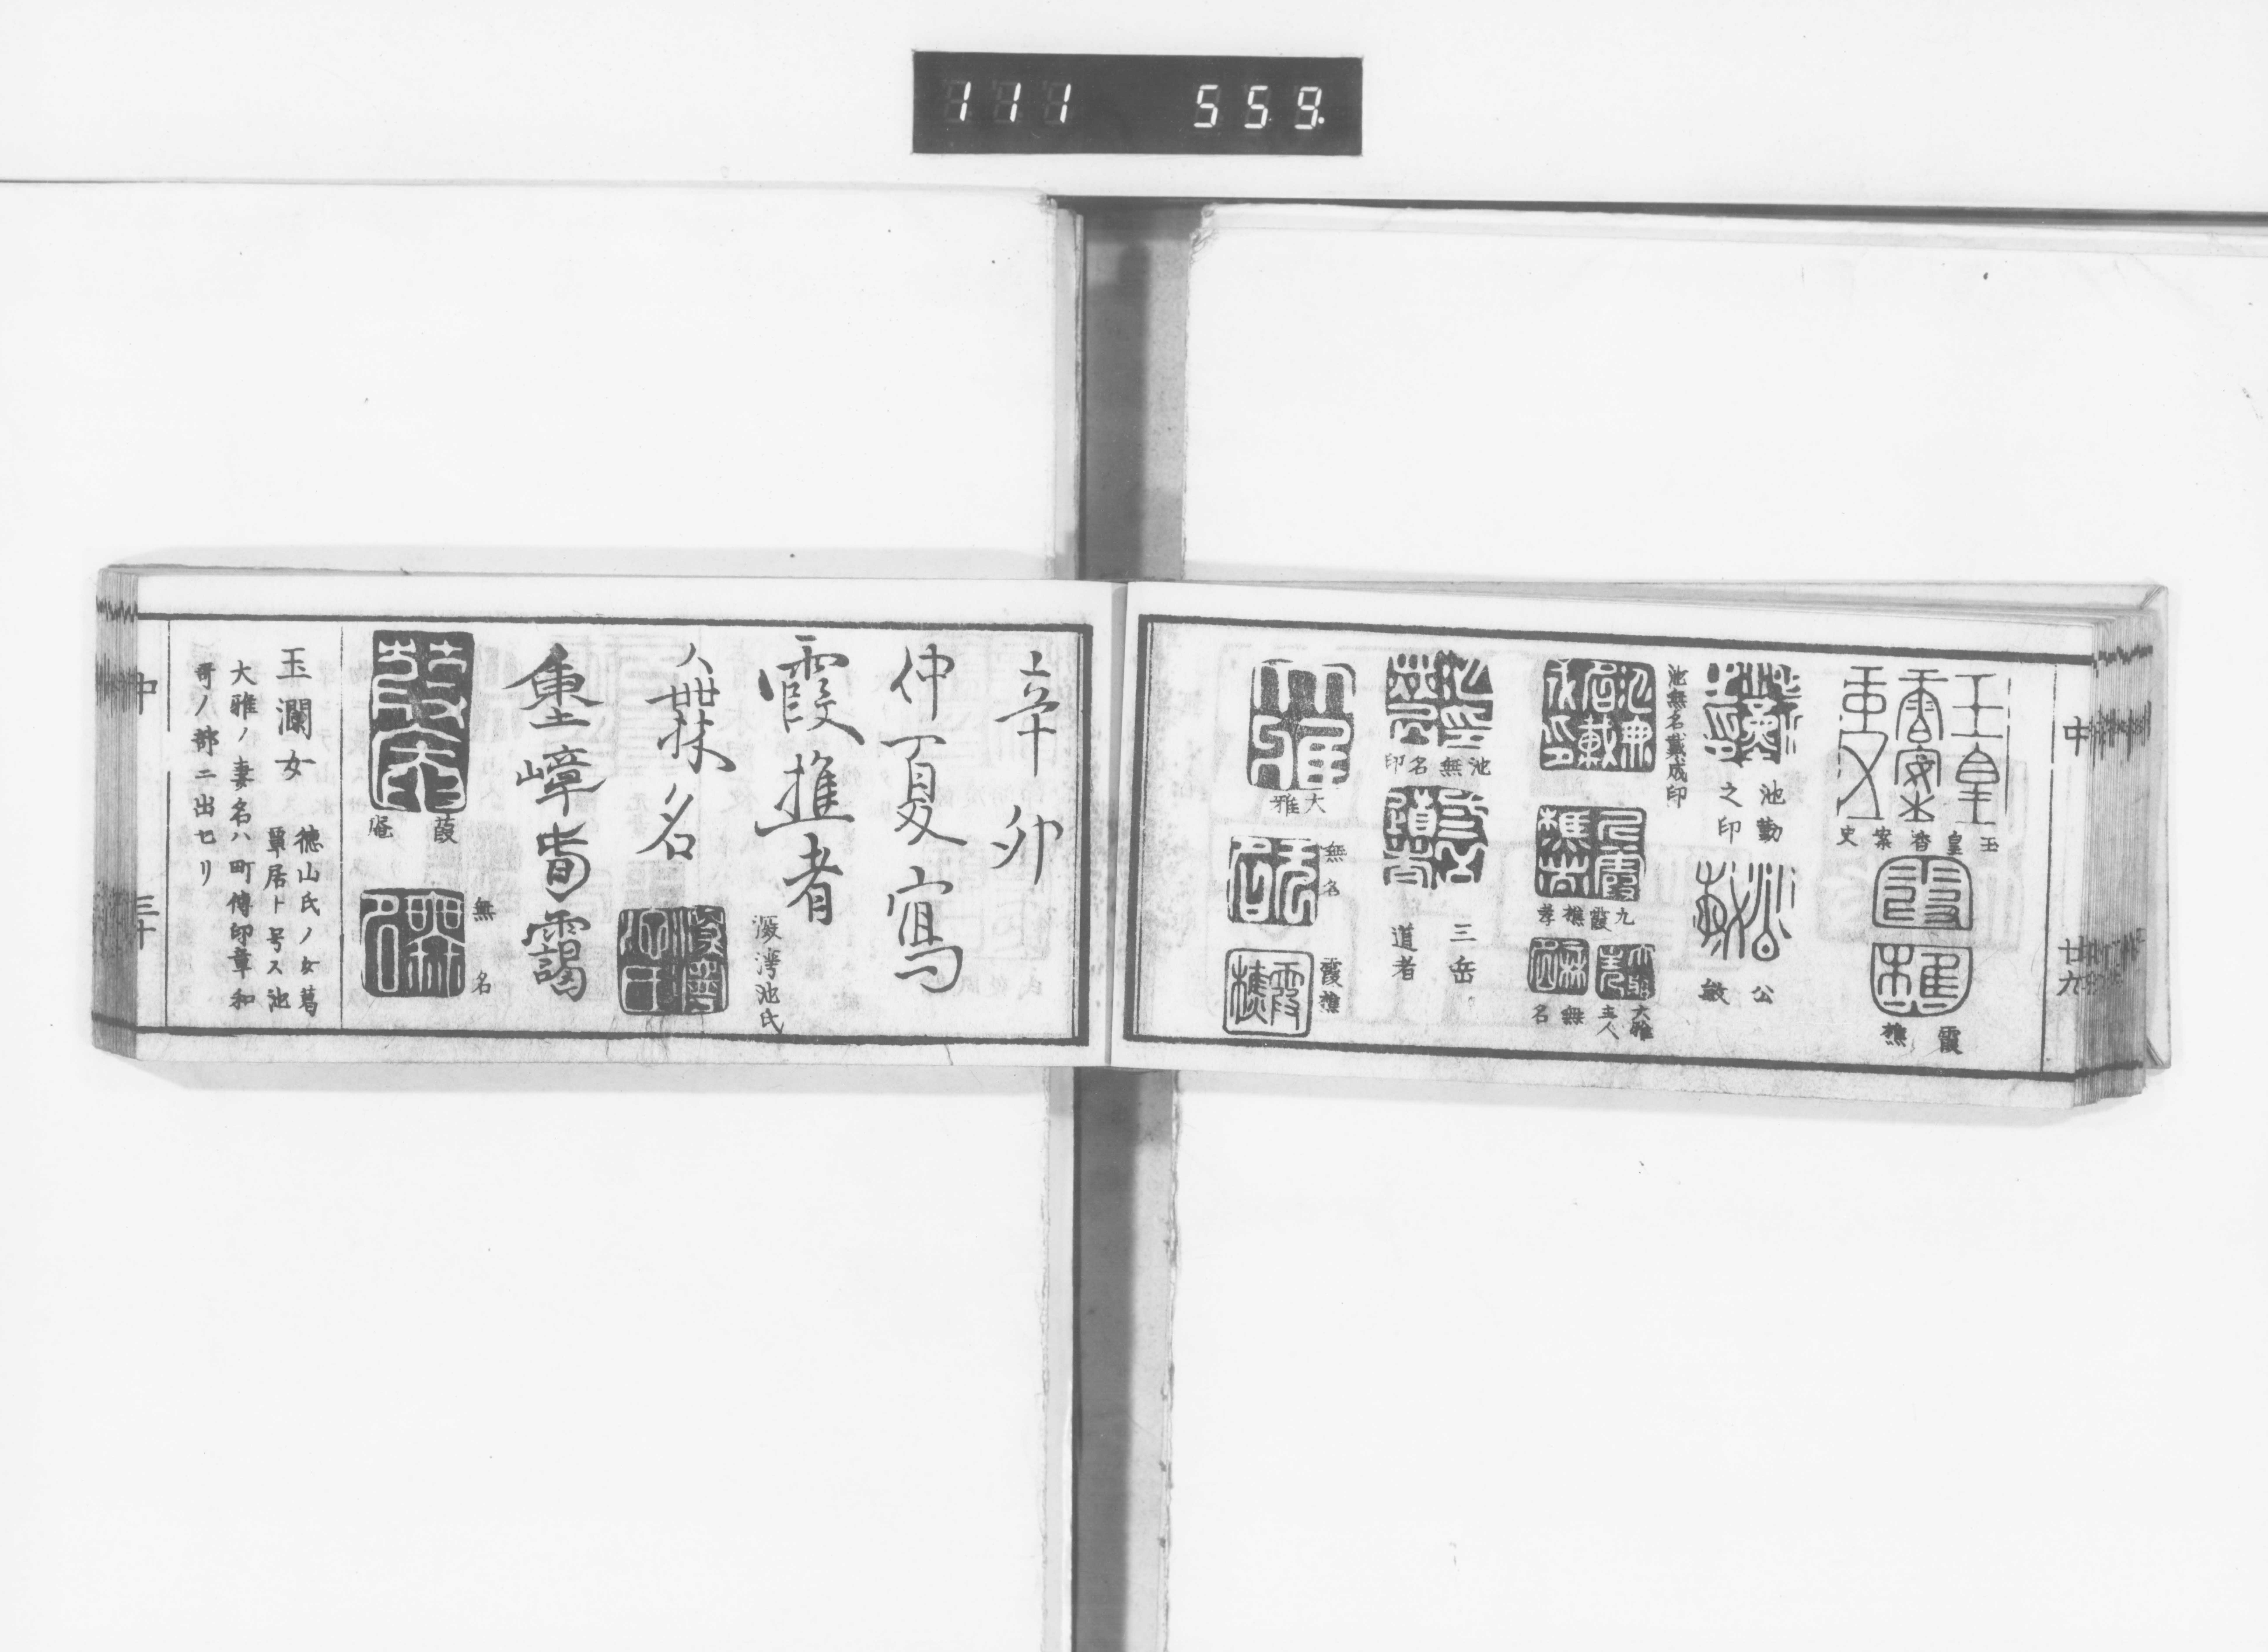 111 559.
中
廿九
玉皇香案史
霞樵
池勤
之印
公敏
池無名戴成印
九霞樵者
大雅
主人
無名
池無名印
三岳
道者
大雅
無名
霞樵
辛卯
仲夏寫
霞樵者
無名
深湾池氏
葭庵
無名
玉瀾女
徳山氏ノ女葛
覃居ト号ス池
大雅ノ妻名ハ町傳印章和
哥ノ部ニ出セリ
中
三十